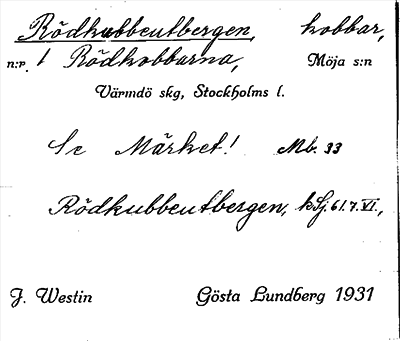 Rödkubbeutbergen, kobbar,
n:r. 1 Rödkobbarna, Möja s:n
Värmdö skg, Stockholms l.
Se Märket! Mb. 33
Rödkubbeutbergen, kSj. 61.7.VI.,
J. Westin Gösta Lundberg 1931